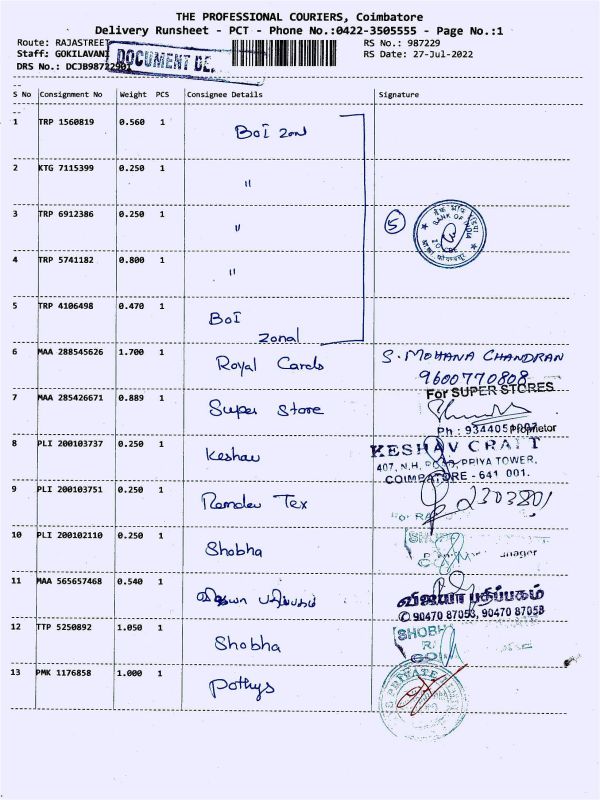 THE PROFESSIONAL COURIERS, Coimbatore
Delivery Runsheet - PCT - Phone No.:0422-3505555 - Page No.:1
Route: RAJASTREET RS No.: 987229
Staff: GOKILAVANI RS Date: 27-Jul-2022
DRS No.: DCJB9872290I
DOCUMENT DE
S No Consignment No Weight PCS Consignee Details Signature
1 TRP 1560819 0.560 1 BOI Zonal
2 KTG 7115399 0.250 1 "
3 TRP 6912386 0.250 1 " 5
BANK OF INDIA
4 TRP 5741182 0.800 1 "
5 TRP 4106498 0.470 1 BOI
Zonal
6 MAA 288545626 1.700 1 Royal Cards S. MOHANA CHANDRAN
9600770808
7 MAA 285426671 0.889 1 Super Store For SUPER STORES
Proprietor
8 PLI 200103737 0.250 1 Keshav KESHAV CRAFT
407, N.H. PRIYA TOWER,
COIMBATORE - 641 001.
9 PLI 200103751 0.250 1 Ramdev Tex 2303801
10 PLI 200102110 0.250 1 Shobha
11 MAA 565657468 0.540 1 விஜயா பதிப்பகம் விஜயா பதிப்பகம்
90470 87053, 90470 87058
12 TTP 5250892 1.050 1 Shobha SHOBHA
13 PMK 1176858 1.000 1 Pothys PRIVATE